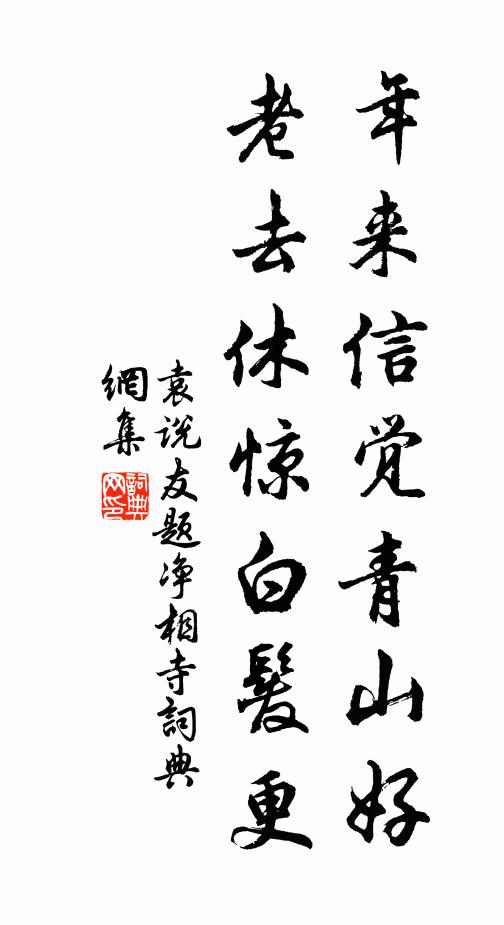 年来信觉青山好
老去休惊白髮更
袁说友题净相寺詞典
網集
詞典
网印